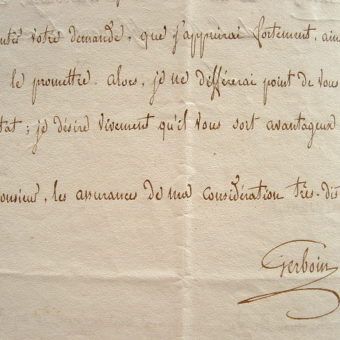 votre demande, que j'appuierai fortement, ain
le promettre. alors, je ne différerai point de vous
tat; je désire vivement qu'il vous soit avantageux
onsieur, les assurances de ma considération très-dis
Gerboin